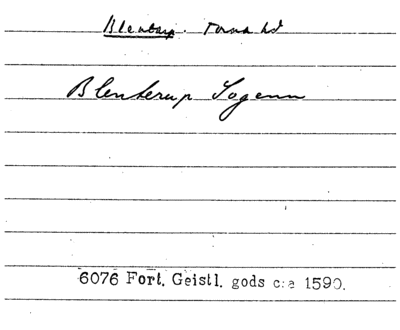 Blentarp. Torna hd
Blenterup Sogenn
6076 Fort. Geistl. gods c:a 1590.